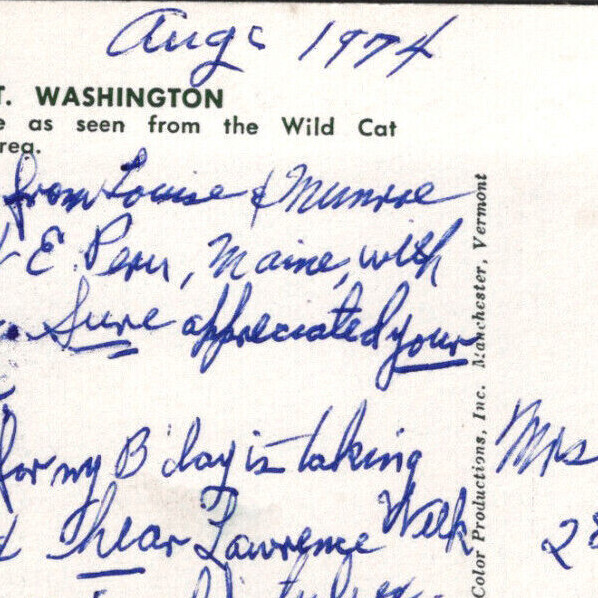 Aug 1974
T. WASHINGTON
e as seen from the Wild Cat
rea.
from Louise & Munroe
E. Peru, Maine, with
Sure appreciated your
for my B'day is taking
hear Lawrence Welk
Color Productions, Inc. Manchester, Vermont
Mrs
2